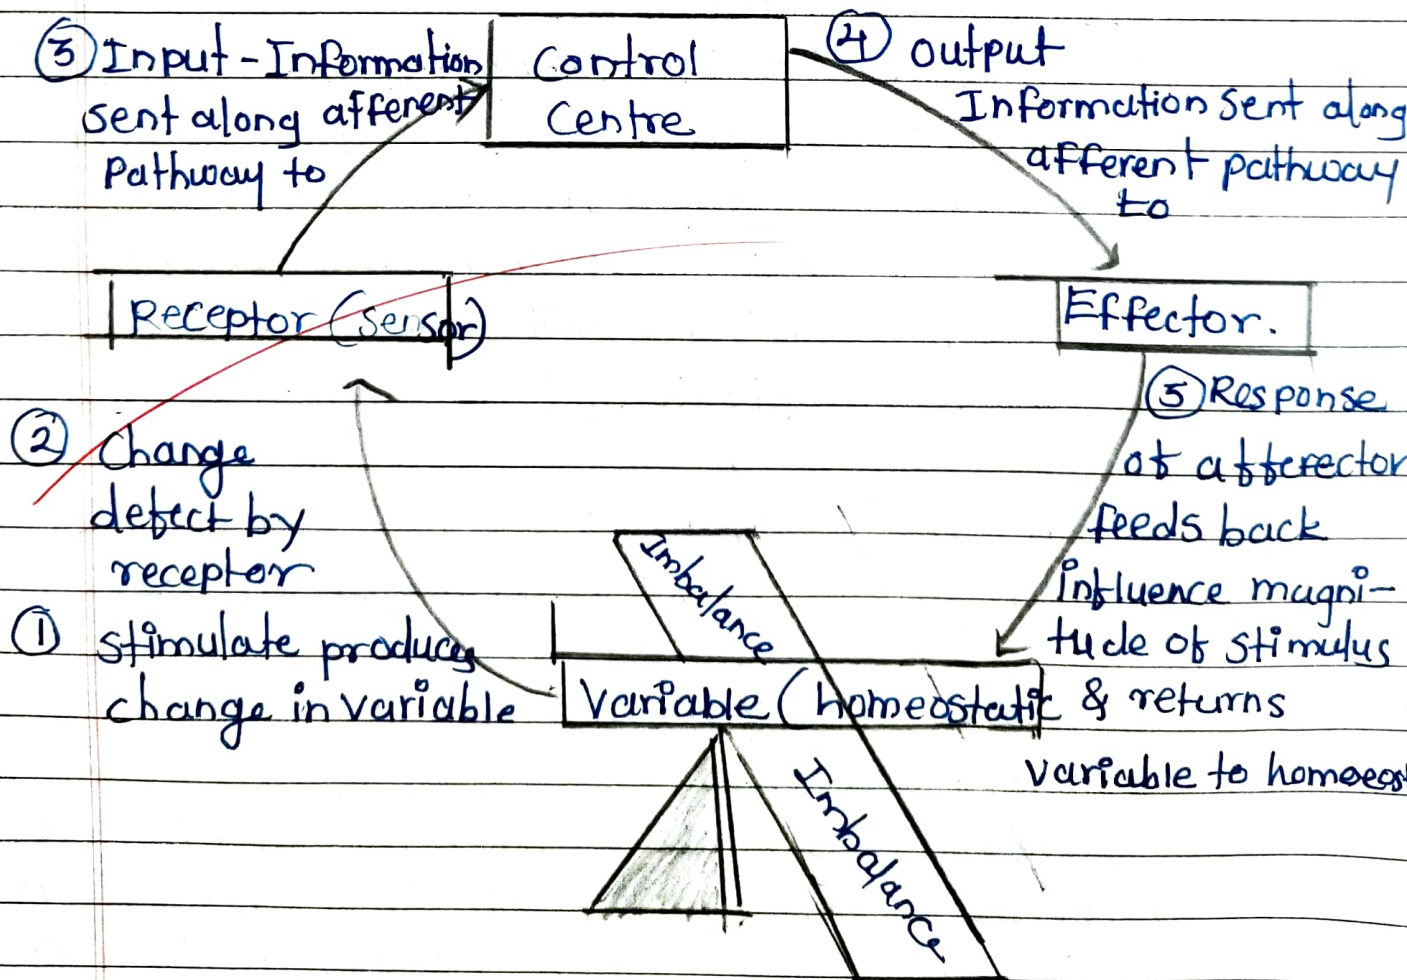 ③ Input - Information
sent along afferent
Pathway to
Control
Centre
④ output
Information sent along
afferent pathway
to
Receptor (sensor)
Effector.
② Change
detect by
receptor
① stimulate produces
change in variable
⑤ Response
of afferector
feeds back
influence magni-
tude of stimulus
& returns
variable to homoeos
Imbalance
Variable (homeostatic
Imbalance